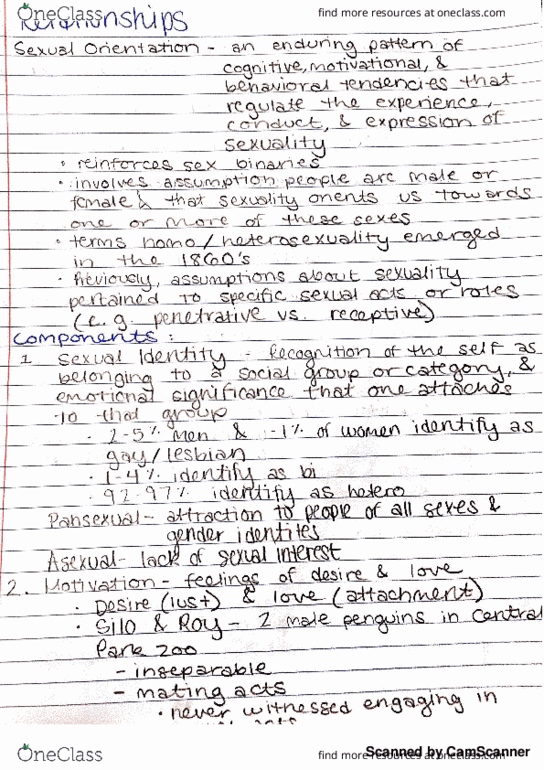 OneClass
find more resources at oneclass.com
Relationships
Sexual Orientation - an enduring pattern of
cognitive, motivational, &
behavioral tendencies that
regulate the experience,
conduct, & expression of
sexuality
• reinforces sex binaries
• involves assumption people are male or
female & that sexuality orients us towards
one or more of these sexes
• terms homo/heterosexuality emerged
in the 1860's
• Previously, assumptions about sexuality
pertained to specific sexual acts or roles
(e.g. penetrative vs. receptive)
Components:
1 Sexual Identity - Recognition of the self as
belonging to a social group or category, &
emotional significance that one attaches
to that group
• 2-5% Men & ~1% of women identify as
gay/lesbian
• 1-4% identify as bi
• 92-97% identify as hetero
Pansexual - attraction to people of all sexes &
gender identites
Asexual - lack of sexual interest
2. Motivation - feelings of desire & love
• Desire (lust) & love (attachment)
• Silo & Roy - 2 male penguins in Central
Park Zoo
- inseparable
- mating acts
• never witnessed engaging in
OneClass
find more resources at oneclass.com
Scanned by CamScanner